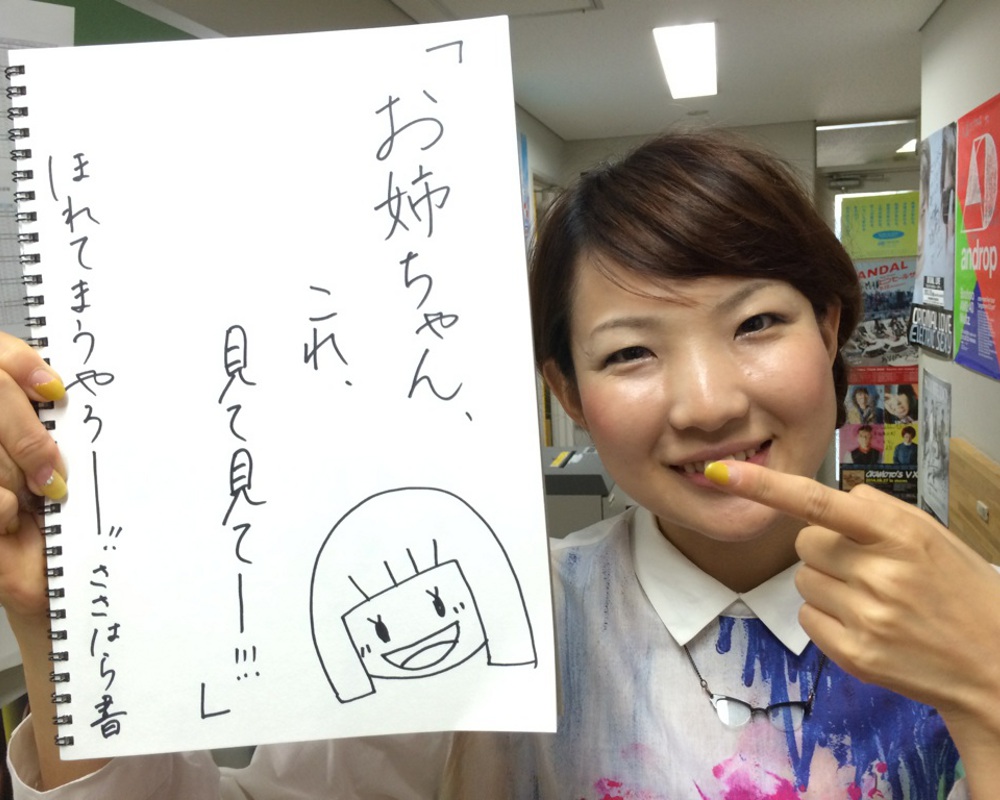 「お姉ちゃん、
これ、
見て見てー!!!」
ほれてまうやろー!!ささはら書
androp
ANDAL